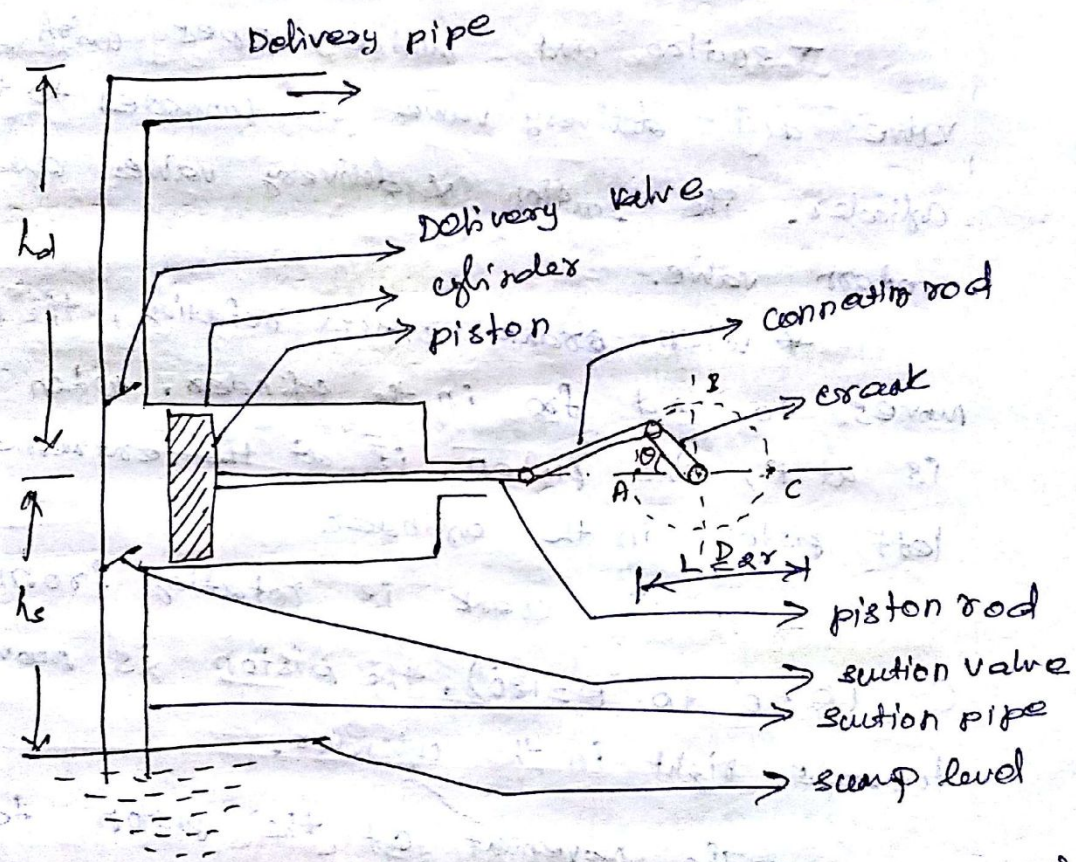 Delivery pipe
hd
Delivery valve
cylinder
piston
connectin rod
crank
B
θ
A
C
D
L = 2r
hs
piston rod
suction valve
suction pipe
sump level